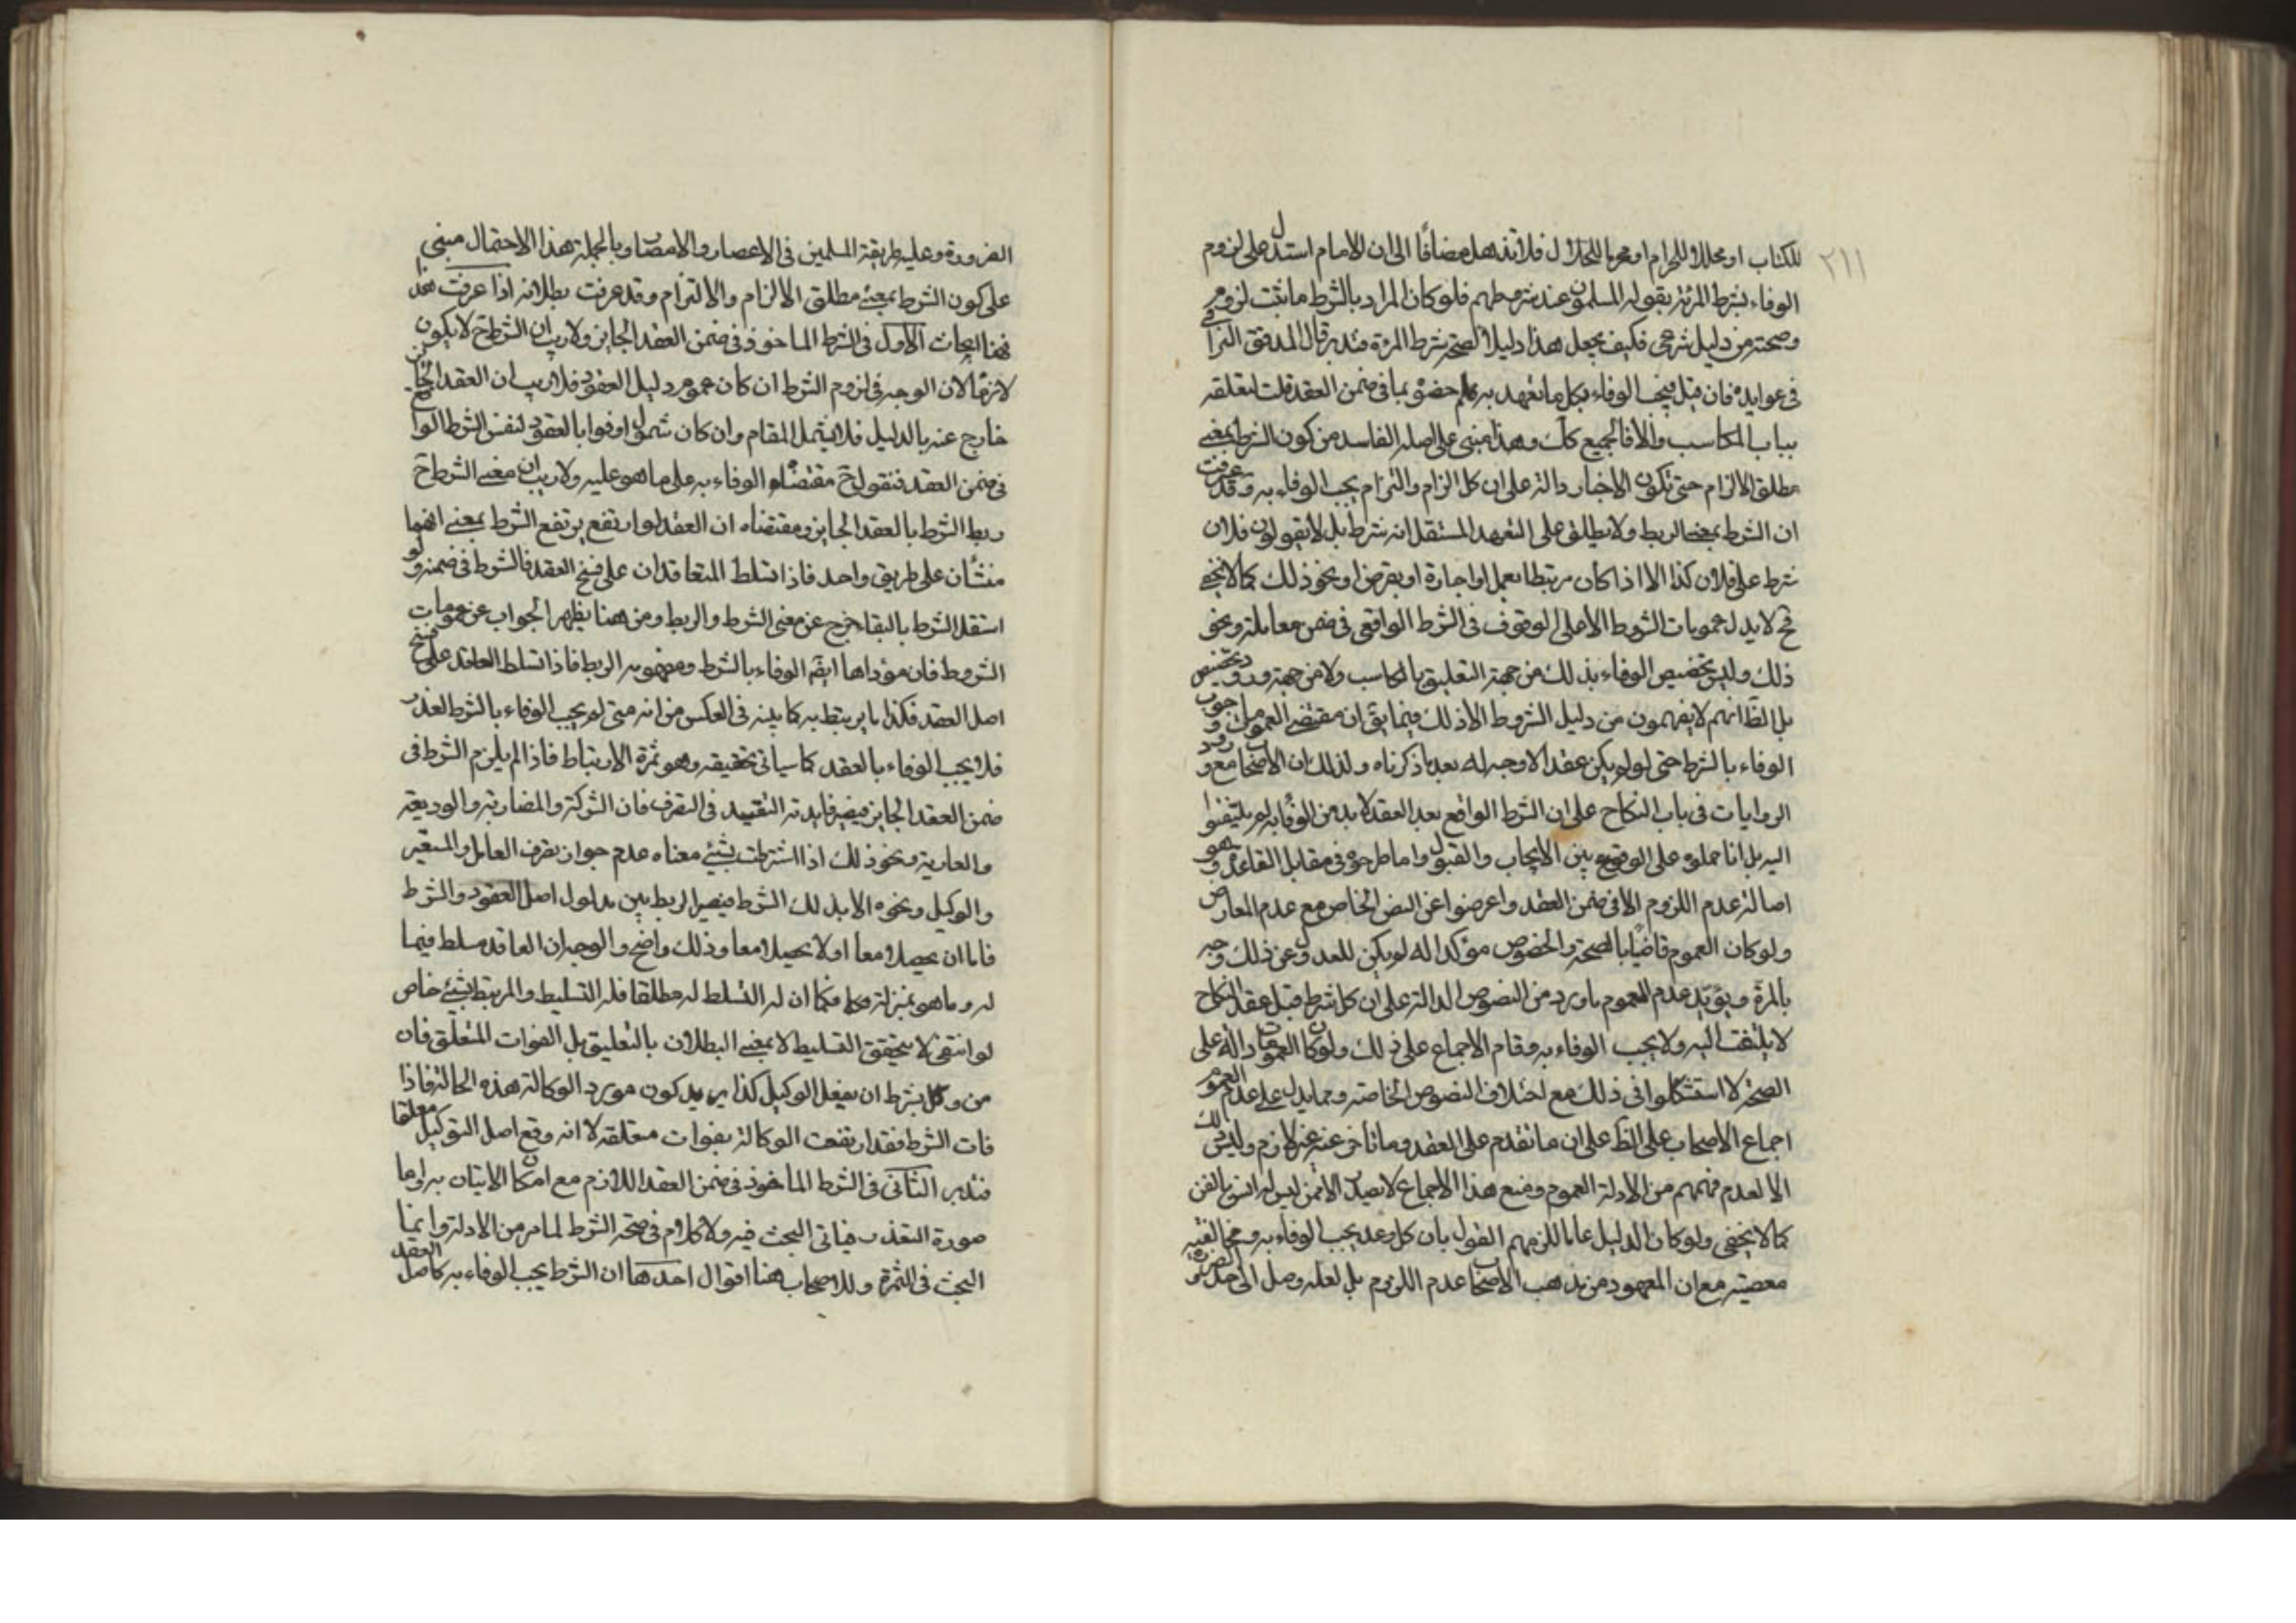 ٢١١
للكتاب او محللا للحرام او محرما للحلال فلا تذهل مضافًا الى ان الامام استدل على لزوم
الوفاء بشرط المرئة بقوله المسلمون عند شروطهم فلو كان المراد بالشرط ما ثبت لزومه
وصحته من دليل شرعي فكيف يجعل هذا دليلا لصحة شرط المرءة فتدبر قال المدقق النراقي
في عوايده فان قيل فيجب الوفاء بكل ما تعهد به خصوه بما في ضمن العقد قلت لتعلقه
بباب المكاسب والا فالجميع كك وهذا مبنى على اصله الفاسد من كون الشرط بمعنى
مطلق الالزام حتى تكون الاخبار دالة على ان كل الزام والتزام يجب الوفاء به وقد عرفت
ان الشرط بمعنى الربط ولا يطلق على التعهد المستقل انه شرط بل لا يقولون فلان
شرط على فلان كذا الا اذا كان مرتبطا بعمل او اجارة او بقرض او نحو ذلك كما لا يخفى
فح لا يدل عمومات الشروط الا على الوقوف في الشرط الواقعى في ضمن معاملة ونحو
ذلك وليس تخصيص الوفاء بذلك من جهة التعليق بالمكاسب ولا من جهة ورود تخصيص
بل الظ انهم لا يفهمون من دليل الشروط الا ذلك فيما يق ان مقتضى العموم وجوب
الوفاء بالشرط حتى لو لم يكن عقد الا وجه له بعد ما ذكرناه ولذلك ان الاصحاب مع ورود
الروايات في باب النكاح على ان الشرط الواقع بعد العقد لا بد من الوفاء به لم يلتفتوا
اليه بل اما حملوه على الوقوع بين الايجاب والقبول واما طرحوه في مقابل القاعدة وهو
اصالة عدم اللزوم الا في ضمن العقد واعرضوا عن النص الخاص مع عدم المعارض
ولو كان العموم قاضيًا بالصحة والخصوص مؤكدا له لم يكن للعدول عن ذلك وجه
بالمرة ويؤيد عدم العموم ما ورد من النصوص الدالة على ان كل شرط قبل عقد النكاح
لا يلتفت اليه ولا يجب الوفاء به وقام الاجماع على ذلك ولو كان العمومات دالة على
الصحة لاستشكلوا في ذلك مع اختلاف النصوص الخاصة ومما يدل على عدم العموم
اجماع الاصحاب على الظ على ان ما تقدم على العقد وما تاخر عنه غير لازم وليس ذلك
الا لعدم فهمهم من الادلة العموم ومنع هذا الاجماع لا يصدر الا ممن ليس له انس بالفن
كما لا يخفى ولو كان الدليل عاما للزمهم القول بان كل وعد يجب الوفاء به ومخالفته
معصية مع ان المعهود من مذهب الاصحاب عدم اللزوم بل لعله وصل الى حد الضرورة
الضرورة وعليه طريقة المسلمين في الاعصار والامصار وبالجملة هذا الاحتمال مبنى
على كون الشرط بمعنى مطلق الالزام والالتزام وقد عرفت بطلانه اذا عرفت هذا
فهنا ابحاث الاول في الشرط الماخوذ في ضمن العقد الجايز ولا ريب ان الشرط ح لا يكون
لازمًا لان الوجه في لزوم الشرط ان كان عموم دليل العقود فلا ريب ان العقد الجايز
خارج عنه بالدليل فلا يشمل المقام وان كان شمول اوفوا بالعقود لنفس الشرط الواقع
في ضمن العقد فنقول ح مقتضاه الوفاء به على ما هو عليه ولا ريب ان معنى الشرط ح
ربط الشرط بالعقد الجايز ومقتضاه ان العقد لو ارتفع يرتفع الشرط بمعنى انهما
منشأن على طريق واحد فاذا تسلط المتعاقدان على فسخ العقد فالشرط في ضمنه ولو
استقل الشرط بالبقاء خرج عن معنى الشرط والربط ومن هنا يظهر الجواب عن عمومات
الشروط فان مؤداها ايضا الوفاء بالشرط ومفهومه الربط فاذا تسلط العاقد على فسخ
اصل العقد فكذا ما يرتبط به كما بينه في العكس من انه متى لم يجب الوفاء بالشرط لتعذر
فلا يجب الوفاء بالعقد كما سياتى تحقيقه وهو ثمرة الارتباط فاذا لم يلزم الشرط في
ضمن العقد الجايز فيصير فايدته التقييد في التصرف فان الشركة والمضاربة والوديعة
والعارية ونحو ذلك اذا اشترطت بشئ معناه عدم جواز تصرف العامل والمستعير
والوكيل ونحوه الا بذلك الشرط فيصير الربط بين مدلول اصل العقود والشرط
فاما ان يحصلا معا او لا يحصلا معا وذلك واضح والوجه ان العاقد مسلط فيما
له وما هو بمنزلته فكما ان له التسلط له مطلقا فله التسليط والمرتبط بشئ خاص
لو انتفى لا يتحقق التسليط لا بمعنى البطلان بالتعليق بل الفوات المتعلق فان
من وكل بشرط ان يفعل الوكيل كذا يريد كون مورد الوكالة هذه الحالة فاذا
فات الشرط فقد ارتفعت الوكالة بفوات متعلقه لا انه وقع اصل التوكيل معلقا
فتدبر الثانى في الشرط الماخوذ في ضمن العقد اللازم مع امكان الاتيان به واما
صورة التعذر فياتى البحث فيه ولا كلام في صحة الشرط لما مر من الادلة وانما
البحث في الثمرة وللاصحاب هنا اقوال احدها ان الشرط يجب الوفاء به كاصل العقد